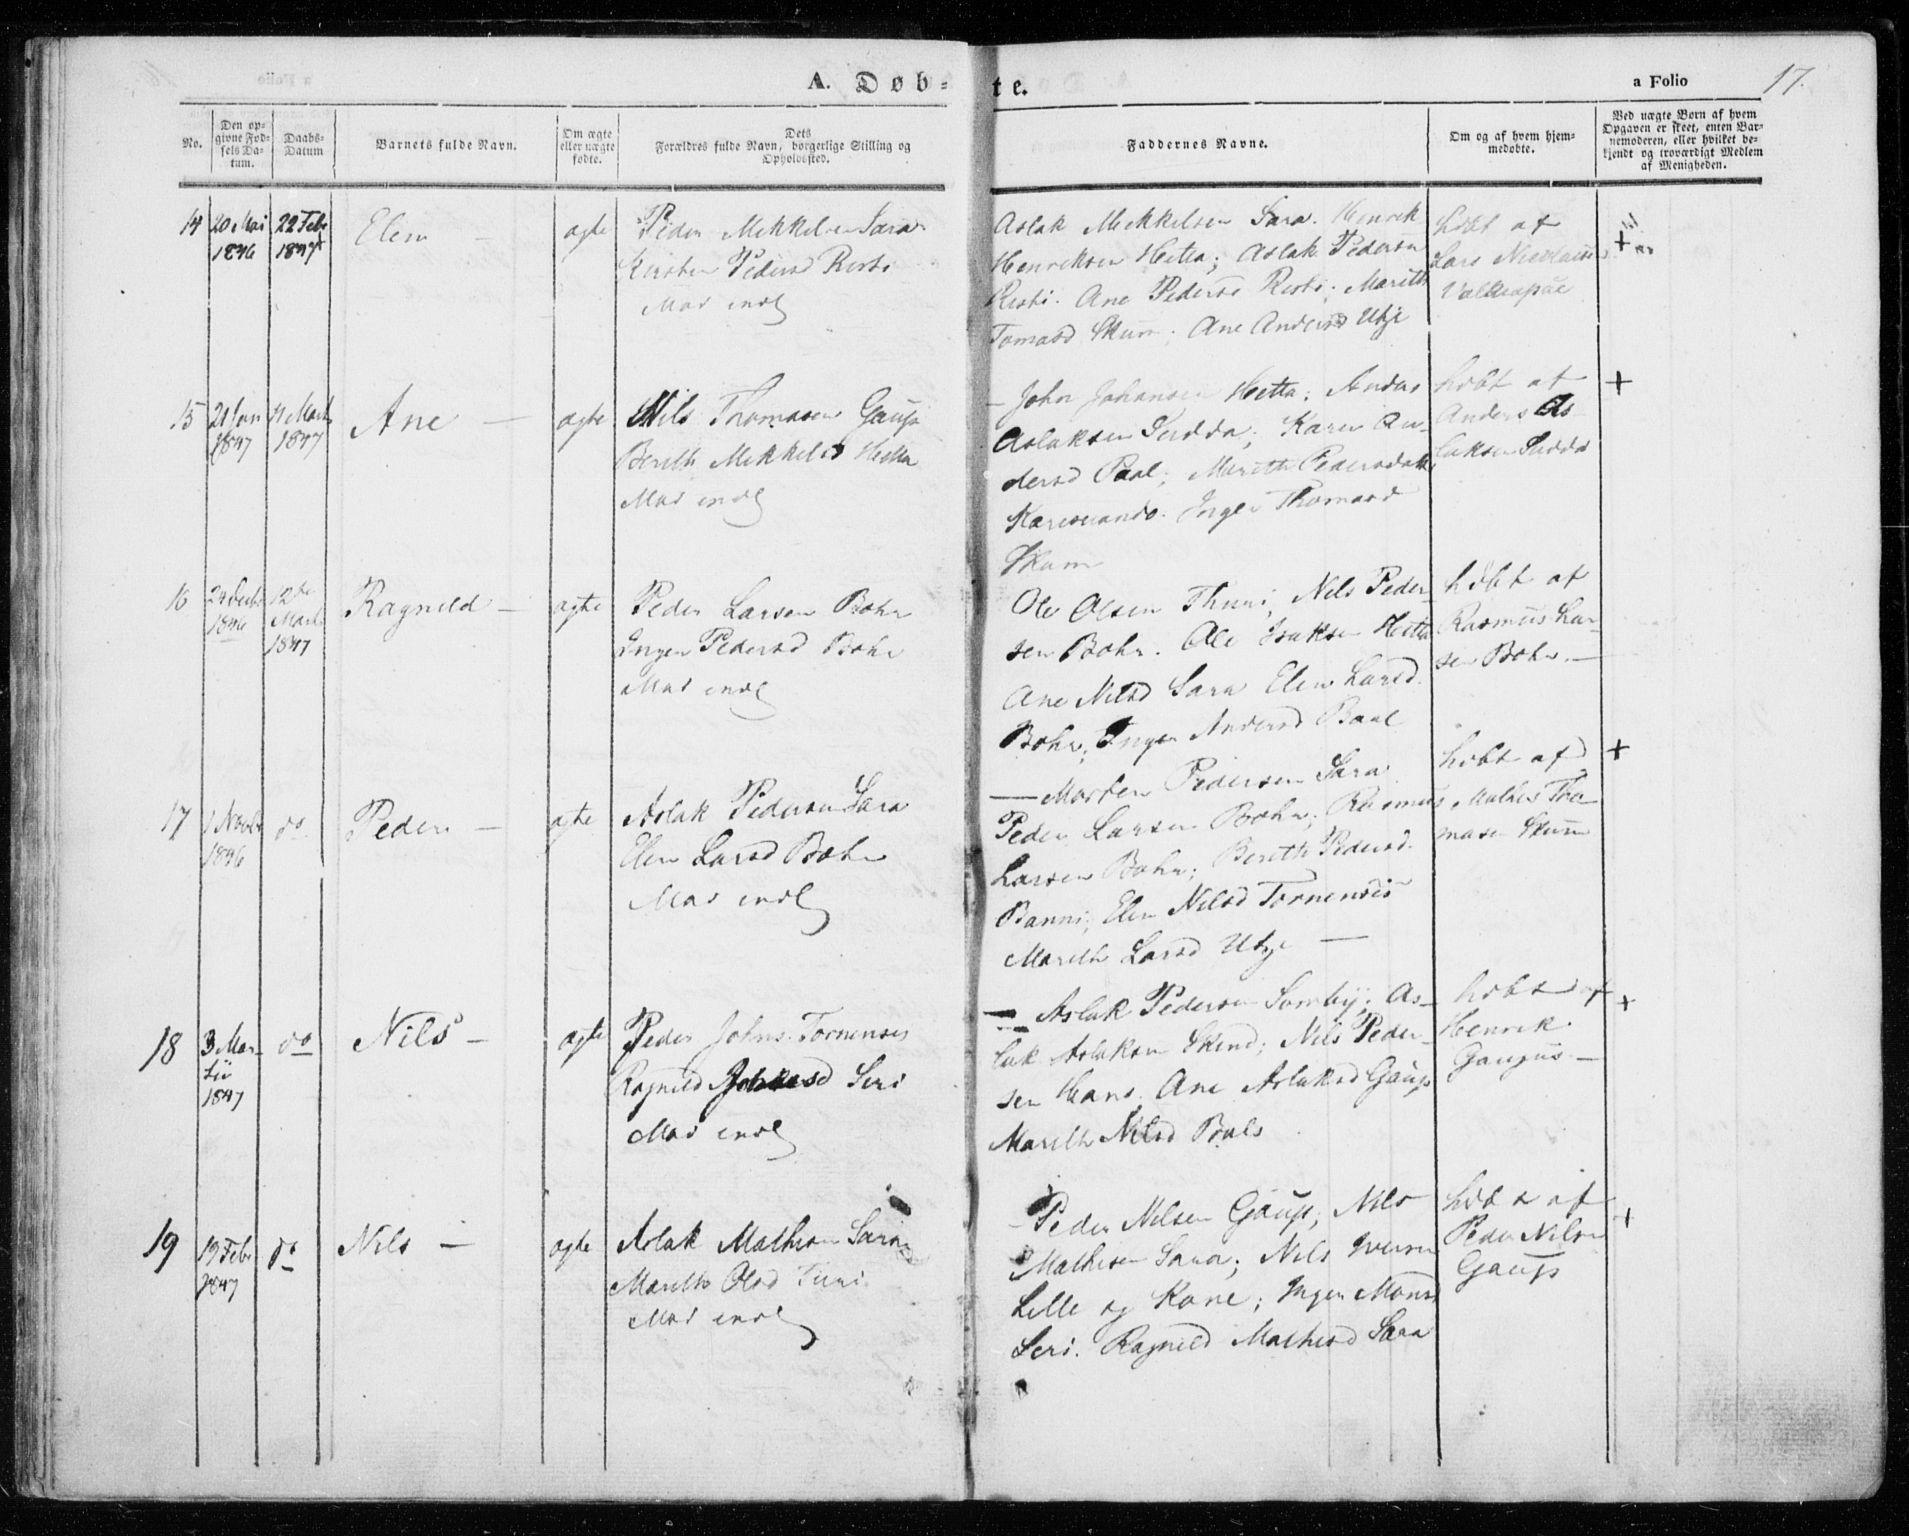 A. Døb-
te.
a Folio 17.
No.
Den op-
givne Fød-
sels Da-
tum.
Daabs-
Datum
Barnets fulde Navn.
Om ægte
eller uægte
fødte.
Dets
Forældres fulde Navn, borgerlige Stilling og
Opholdssted.
Faddernes Navne.
Om og af hvem hjem-
medøbte.
Ved uægte Børn af hvem
Opgaven er skeet, enten Bar-
nemoderen, eller hvilket be-
kjendt og troværdigt Medlem
af Menigheden.
14
20 Mai
1846
22 Feb
1847
Elen -
ægte
Peder Mekkelsen Sara
Kirsten Pedersd Rist
Mas indl
Aslak Mekkelsen Sara. Henrik
Henriksen Hetta; Aslak Pedersen
Risti. Ane Pedersd Risti; Marith
Tomasd Skum; Ane Andersd Utzi
hdbt af
Lars Nicolaus
Valkeapæe
+
15
21 Jan
1847
11 Marts
1847
Ane -
ægte
Nils Thomasen Gaup
Berith Mekkelsd Hetta
Mas indl
- John Johansen Hetta; Anders
Aslaksen Sudda; Karen An-
dersd Paal; Marith Pedersdat
Karesuando. Inger Thomasd
Skum
hdbt af
Anders As-
laksen Sudda
+
16
1846
12te
Marts
1847
Ragnild -
ægte
Peder Larsen Bohr
Inger Pedersd Bohr
Mas indl
Ole Olsen Thuri; Nils Peder-
sen Bohr. Ole Isaksen Hetta
Ane Nilsd Sara Elen Larsd.
Bohr; Inger Andersd Baal
hdbt af
Rasmus Lar-
sen Bohr. -
17
1 Novbr
1846
do
Peder -
ægte
Aslak Pedersen Sara
Elen Larsd Bohr
Mas indl
- Morten Pedersen Sara
Peder Larsen Bohr; Rasmus
Larsen Bohr; Berith Pedersd.
Banni; Elen Nilsd Tornensis
Marith Larsd Utzi -
hdbt af
Mathis Tho-
masen Skum
+
18
3 Mar-
tii
1847
do
Nils -
ægte
Peder Johns. Tornensis
Ragnild Siri
Mas indl
- Aslak Pedersen Somby; As-
lak Aslaksen Skind; Nils Peder-
sen Hans. Ane Aslaksd Gaup
Marith Nilsd Buls
hdbt af
Henrik
Gaupus. -
+
19
19 Feb
1847
do
Nils -
ægte
Aslak Mathisen Sara
Marith Olsd Turi
Mas indl
- Peder Nilsen Gaup; Nils
Mathisen Sara; Nils Iversen
Lille og Kone; Inger Monsd
Seri. Ragnild Mathisd Sara
hdbt af
Peder Nilsen
Gaup
+